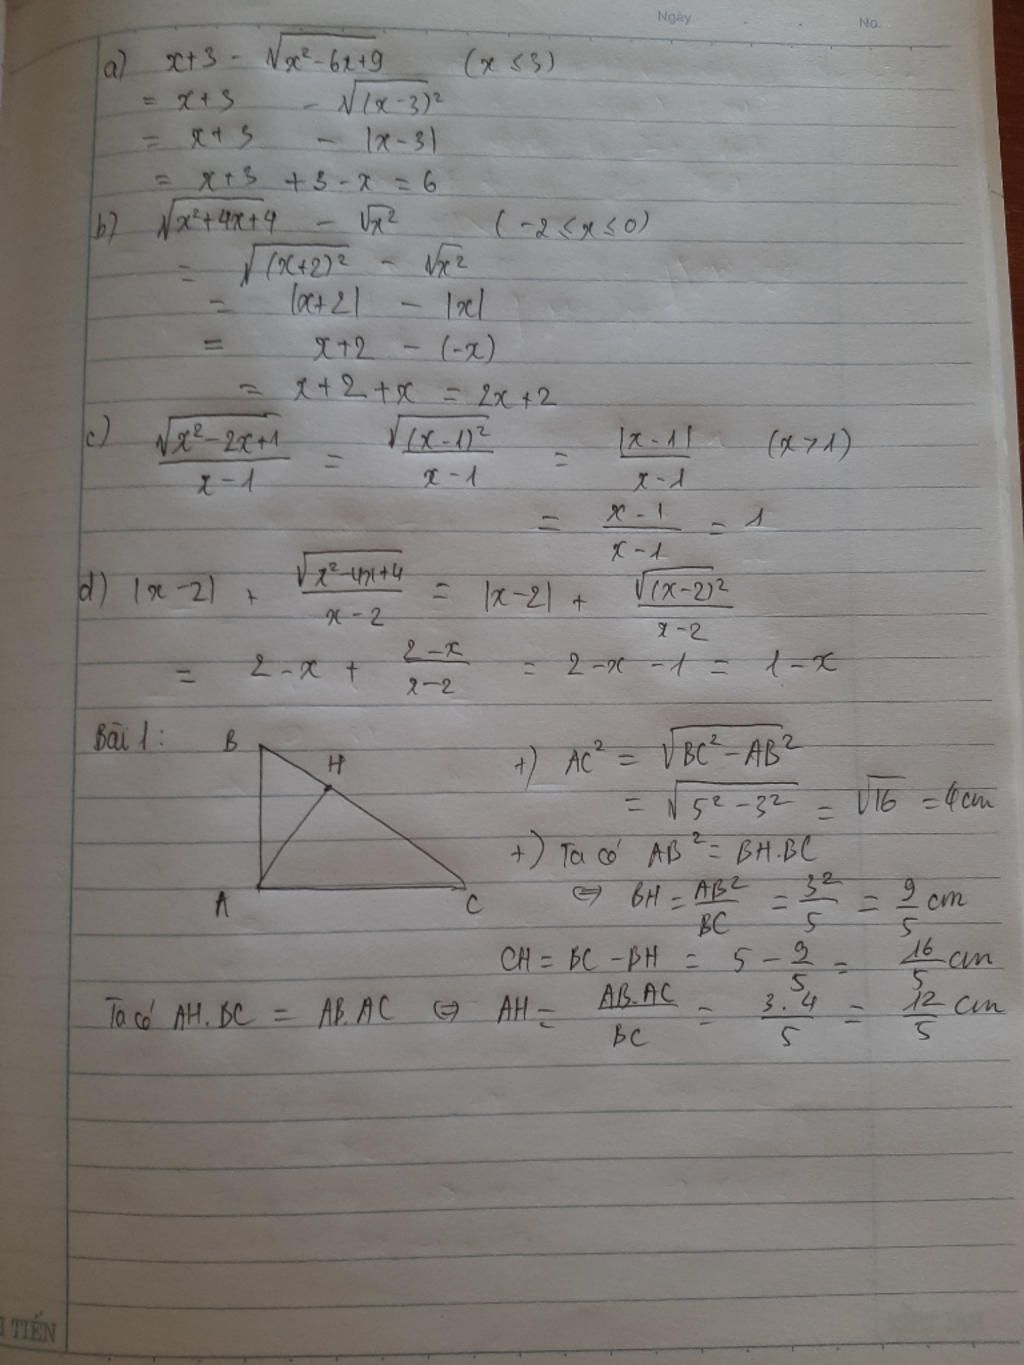 Ngày . . No.
a) x+3 - √(x²-6x+9) (x ≤ 3)
= x+3 - √((x-3)²)
= x+3 - |x-3|
= x+3 +3-x = 6
b) √(x²+4x+4) - √x² (-2 ≤ x ≤ 0)
= √((x+2)²) - √x²
= |x+2| - |x|
= x+2 - (-x)
= x+2+x = 2x+2
c) √(x²-2x+1)/(x-1) = √((x-1)²)/(x-1) = |x-1|/(x-1) (x>1)
= (x-1)/(x-1) = 1
d) |x-2| + √(x²-4x+4)/(x-2) = |x-2| + √((x-2)²)/(x-2)
= 2-x + (2-x)/(x-2) = 2-x-1 = 1-x
Bài 1:
B
H
A
C
+) AC² = √(BC²-AB²)
= √(5²-3²) = √16 = 4cm
+) Ta có AB² = BH.BC
⇔ BH = AB²/BC = 3²/5 = 9/5 cm
CH = BC - BH = 5 - 9/5 = 16/5 cm
Ta có AH.BC = AB.AC ⇔ AH = AB.AC/BC = 3.4/5 = 12/5 cm
TIẾN